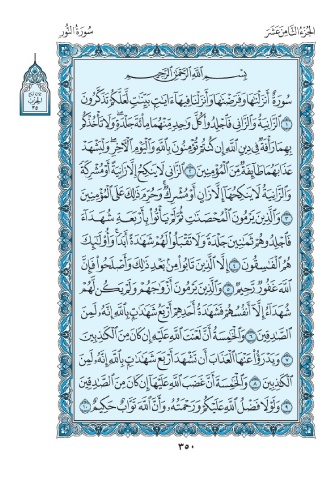 الجزء الثامن عشر
سورة النور
بسم الله الرحمن الرحيم
سورة أنزلناها وفرضناها وأنزلنا فيها ءايت بينت لعلكم تذكرون
١ الزانية والزاني فاجلدوا كل وحد منهما مائة جلدة ولا تأخذكم
بهما رأفة في دين الله إن كنتم تؤمنون بالله واليوم الآخر وليشهد
عذابهما طائفة من المؤمنين ٢ الزاني لا ينكح إلا زانية أو مشركة
والزانية لا ينكحها إلا زان أو مشرك وحرم ذلك على المؤمنين
٣ والذين يرمون المحصنت ثم لم يأتوا بأربعة شهداء
فاجلدوهم ثمنين جلدة ولا تقبلوا لهم شهدة أبدا وأولئك
هم الفسقون ٤ إلا الذين تابوا من بعد ذلك وأصلحوا فإن
الله غفور رحيم ٥ والذين يرمون أزوجهم ولم يكن لهم
شهداء إلا أنفسهم فشهدة أحدهم أربع شهدت بالله إنه لمن
الصدقين ٦ والخمسة أن لعنت الله عليه إن كان من الكذبين
٧ ويدرؤا عنها العذاب أن تشهد أربع شهدت بالله إنه لمن
الكذبين ٨ والخمسة أن غضب الله عليها إن كان من الصدقين
٩ ولولا فضل الله عليكم ورحمته وأن الله تواب حكيم ١٠
٣٥٠